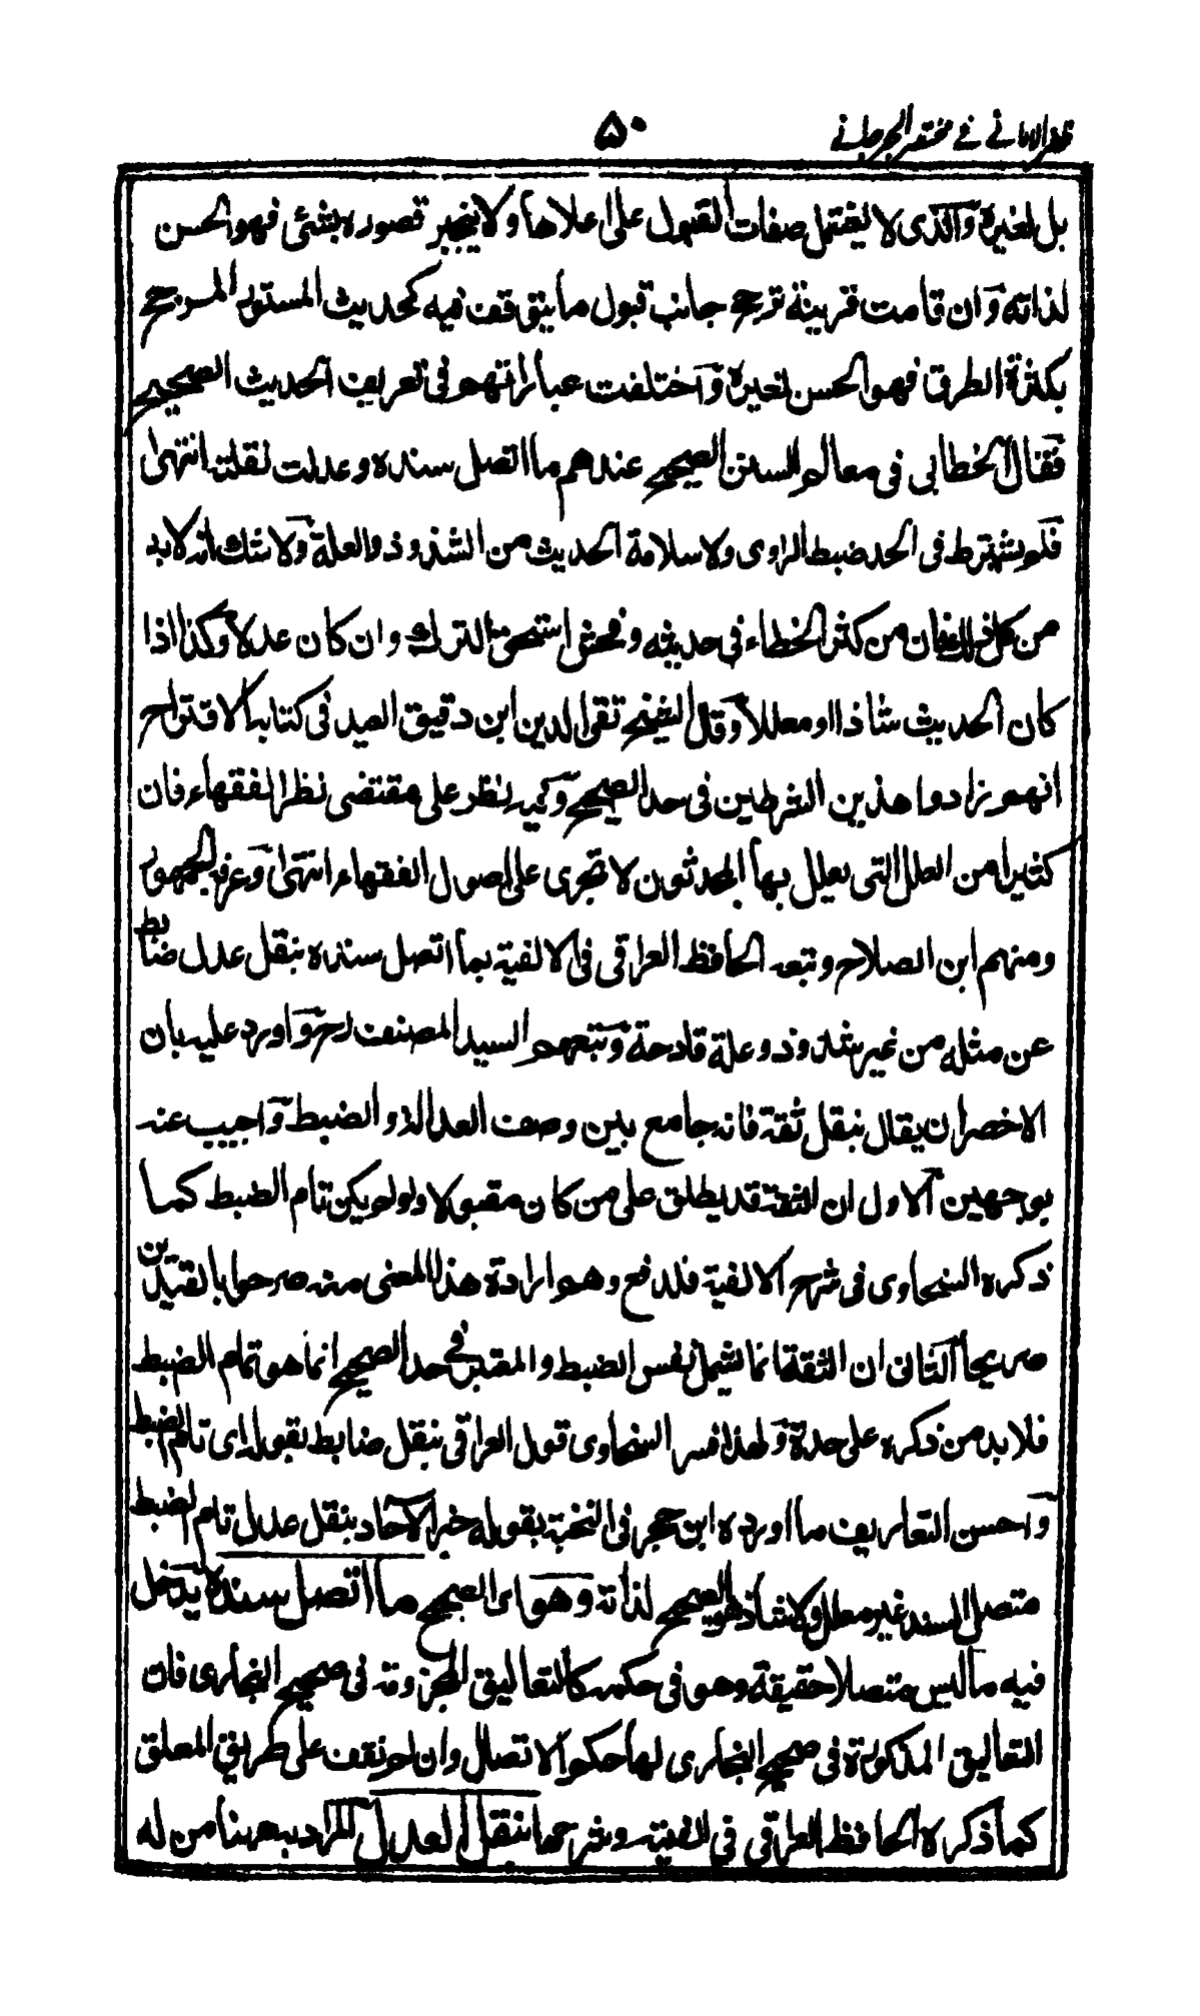 ظفر الامانے فے مختصر الجرجانے
۵۰
بل لغیرہ وَالذی لا یشتمل صفات القبول علی اعلاها ولا ینجبر قصورہ بشئی فهو الحسن
لذاته وَان قامت قرینة ترجح جانب قبول ما یتوقف فیه کحدیث المستور المرجح
بکثرة الطرق فهو الحسن لغیرہ وَاختلفت عباراتهم فی تعریف الحدیث الصحیح
فَقال الخطابی فی معالم السنن الصحیح عندهم ما اتصل سندہ وعدلت نقلته انتهیٰ
فَلم یشترط فی الحد ضبط الراوی ولا سلامة الحدیث من الشذوذ والعلة وَلا شك انه لابد
من کل ذلك فان من کثر الخطاء فی حدیثه وفحش استحق الترك وان کان عدلا وَکذا اذا
کان الحدیث شاذا او معللا وَقال الشیخ تقی الدین ابن دقیق العید فی کتابه الاقتراح
انهم زادوا هذین الشرطین فی حد الصحیح وَفیه نظر علی مقتضی نظر الفقهاء فان
کثیرا من العلل التی یعلل بها المحدثون لا تجری علی اصول الفقهاء انتهیٰ وَعرفه الجمهور
ومنهم ابن الصلاح وتبعه الحافظ العراقی فی الالفیة بما اتصل سندہ بنقل عدل ضابط
عن مثله من غیر شذوذ وعلة قادحة وَتبعهم السید المصنف رح وَاورد علیه بان
الاخصر ان یقال بنقل ثقة فانه جامع بین وصف العدالة والضبط وَاجیب عنه
بوجهین الاول ان الثقة قد یطلق علی من کان مقبولا ولو لم یکن تام الضبط کما
ذکرہ السخاوی فی شرح الالفیة فلدفع وهم ارادة هذا المعنی منه صرحوا بالقیدین
صریحا الثانی ان الثقة انما یشمل نفس الضبط والمعتبر فی حد الصحیح انما هو تمام الضبط
فلا بد من ذکرہ علی حدة وَلهذا فسر السخاوی قول العراقی بنقل ضابط بقوله ای تام الضبط
وَاحسن التعاریف ما اوردہ ابن حجر فی النخبة بقوله خبر الآحاد بنقل عدل تام الضبط
متصل السند غیر معلل ولا شاذ هو الصحیح لذاته وَهو ای الصحیح ما اتصل سندہ یدخل
فیه ما لیس متصلا حقیقة وهو فی حکمه کالتعالیق المجزومة فی صحیح البخاری فان
التعالیق المذکورة فی صحیح البخاری لها حکم الاتصال وان لم نقف علی طریق المعلق
کما ذکرہ الحافظ العراقی فی الفیته وشرحها بنقل العدل المراد به هنا من له